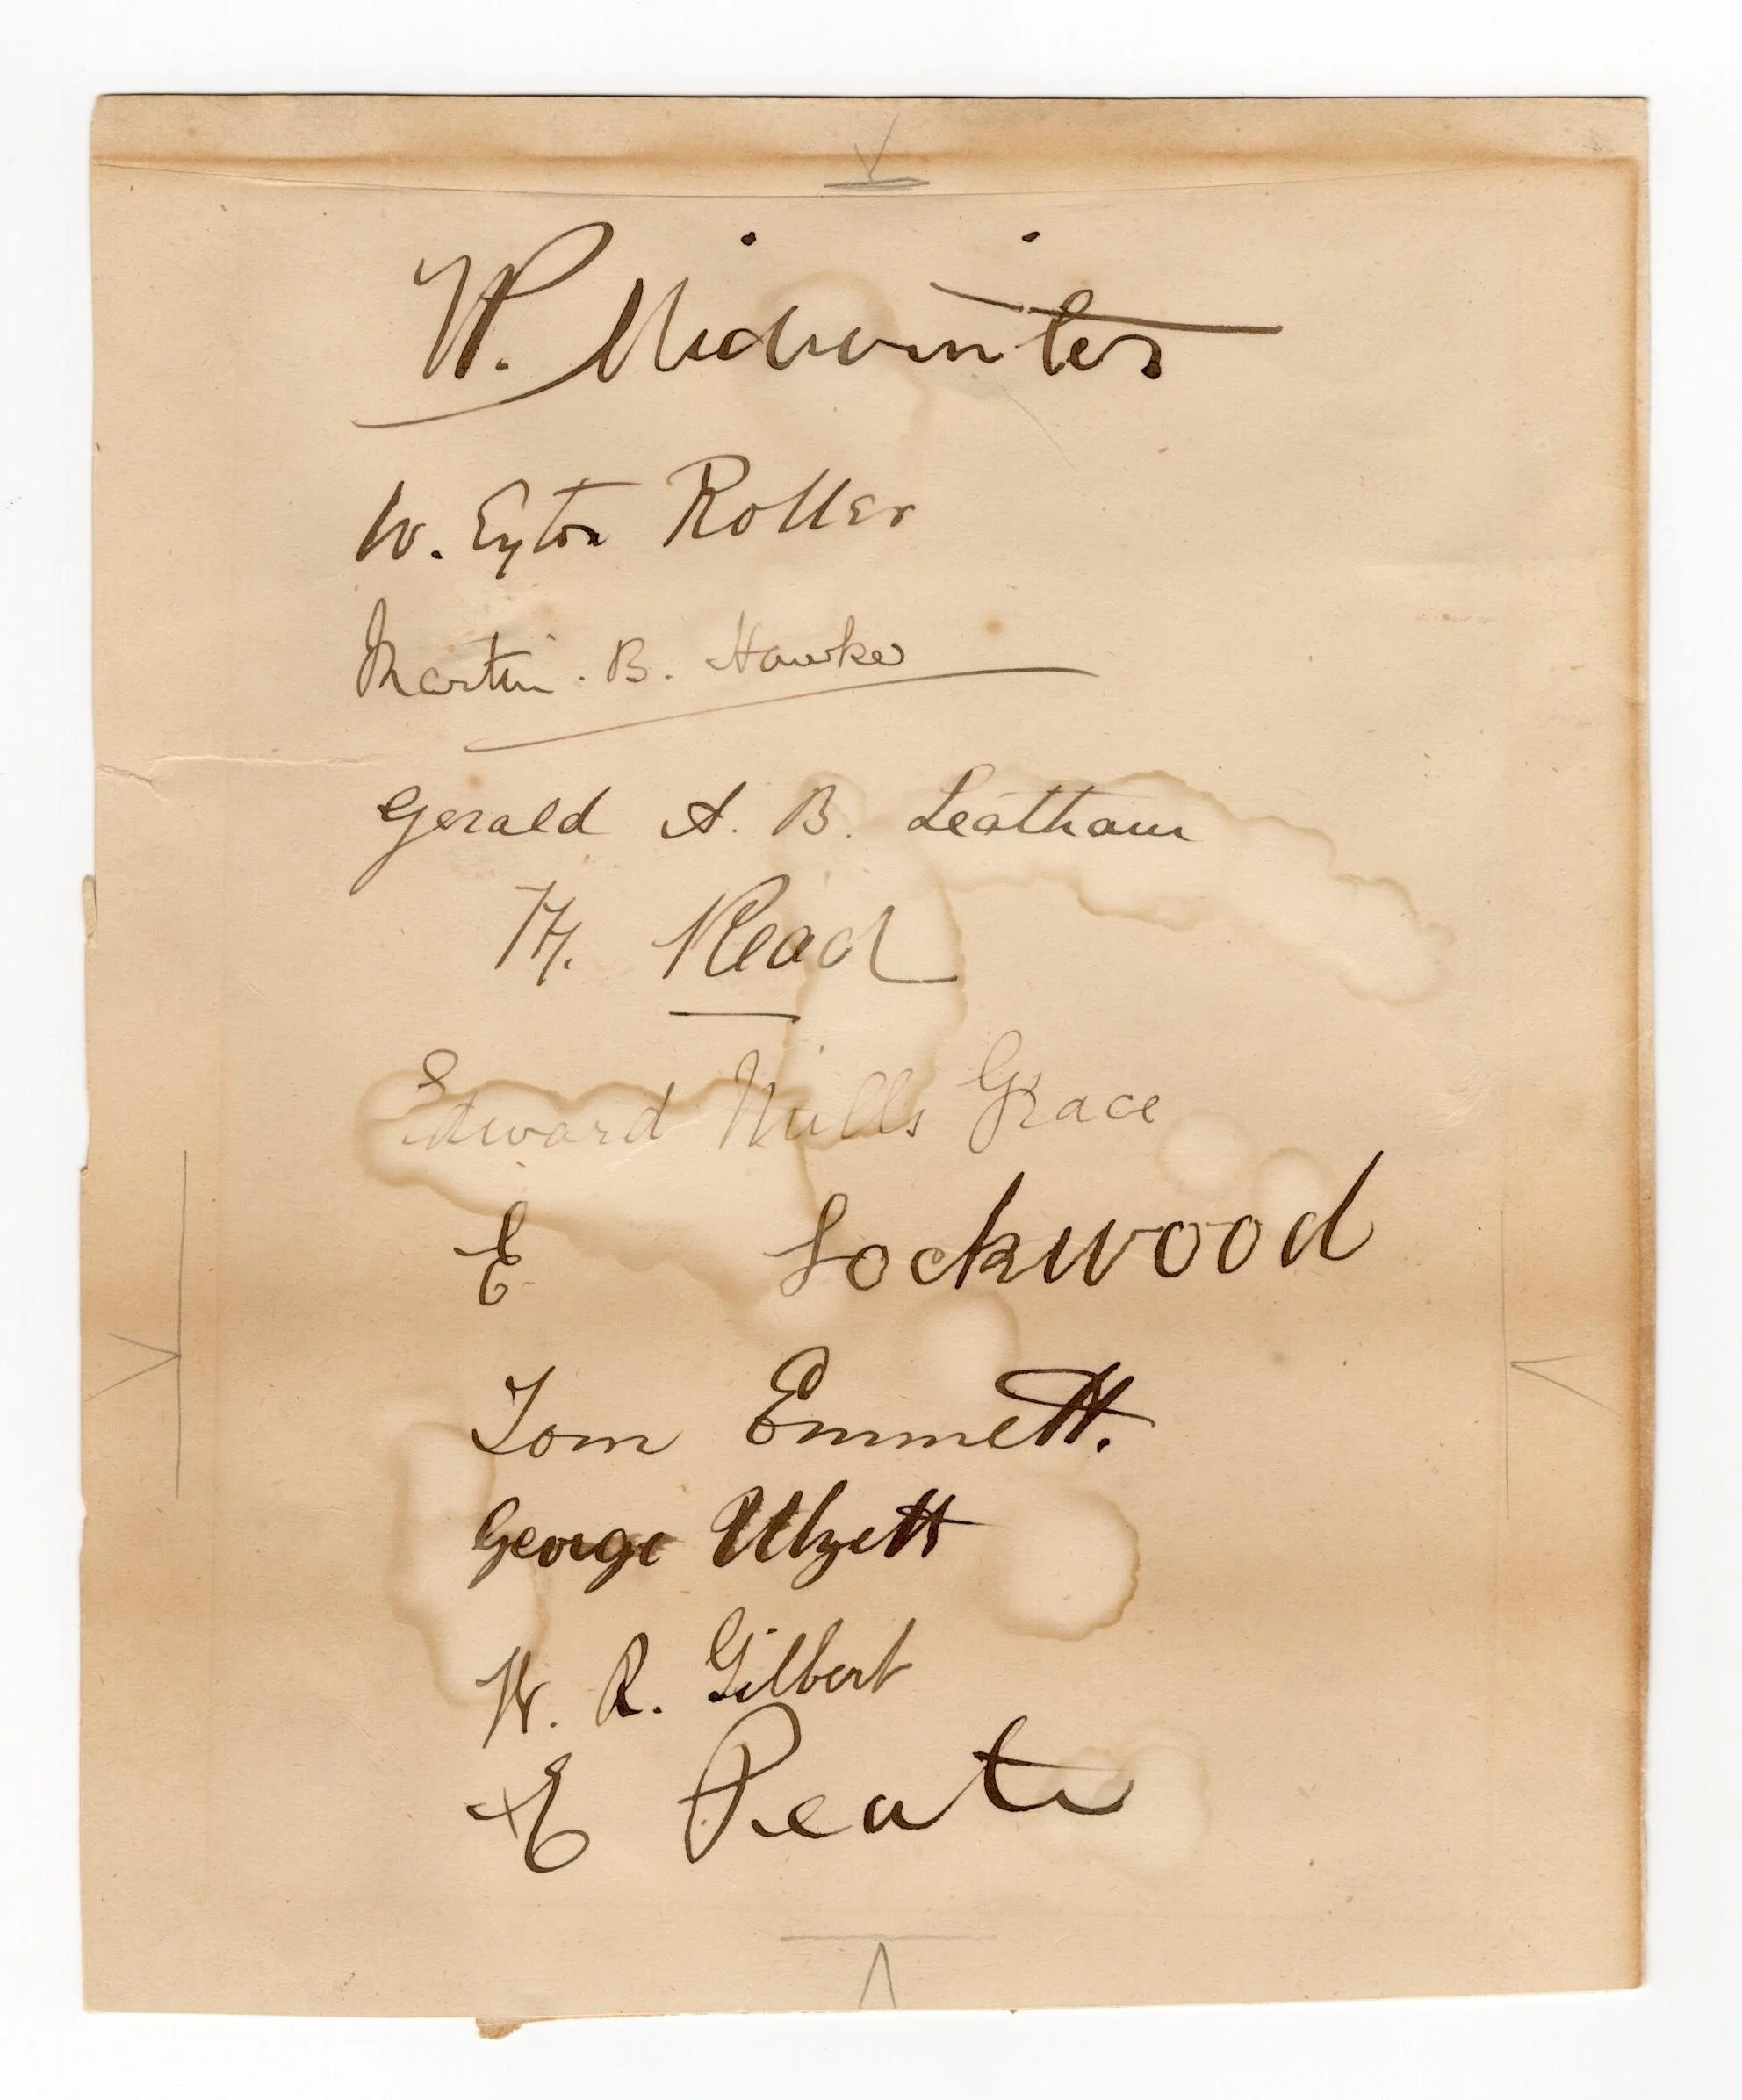 W. Midwinter
W. Eyton Roller
Martin. B. Hawke
Gerald A. B. Leatham
W. Read
Edward Mills Grace
E Lockwood
Tom Emmett.
George Ulyett
W. R. Gilbert
E Peate